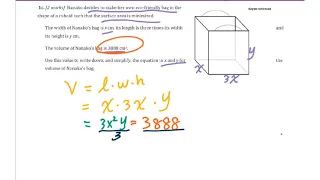 1c. [2 marks] Nanako decides to make her own eco-friendly bag in the
shape of a cuboid such that the surface area is minimized.
The width of Nanako's bag is x cm, its length is three times its width and
its height is y cm.
The volume of Nanako's bag is 3888 cm³.
Use this value to write down, and simplify, the equation in x and y for the
volume of Nanako's bag.
x
3x
y
V = l . w . h
= x . 3x . y
= 3x²y = 3888
3